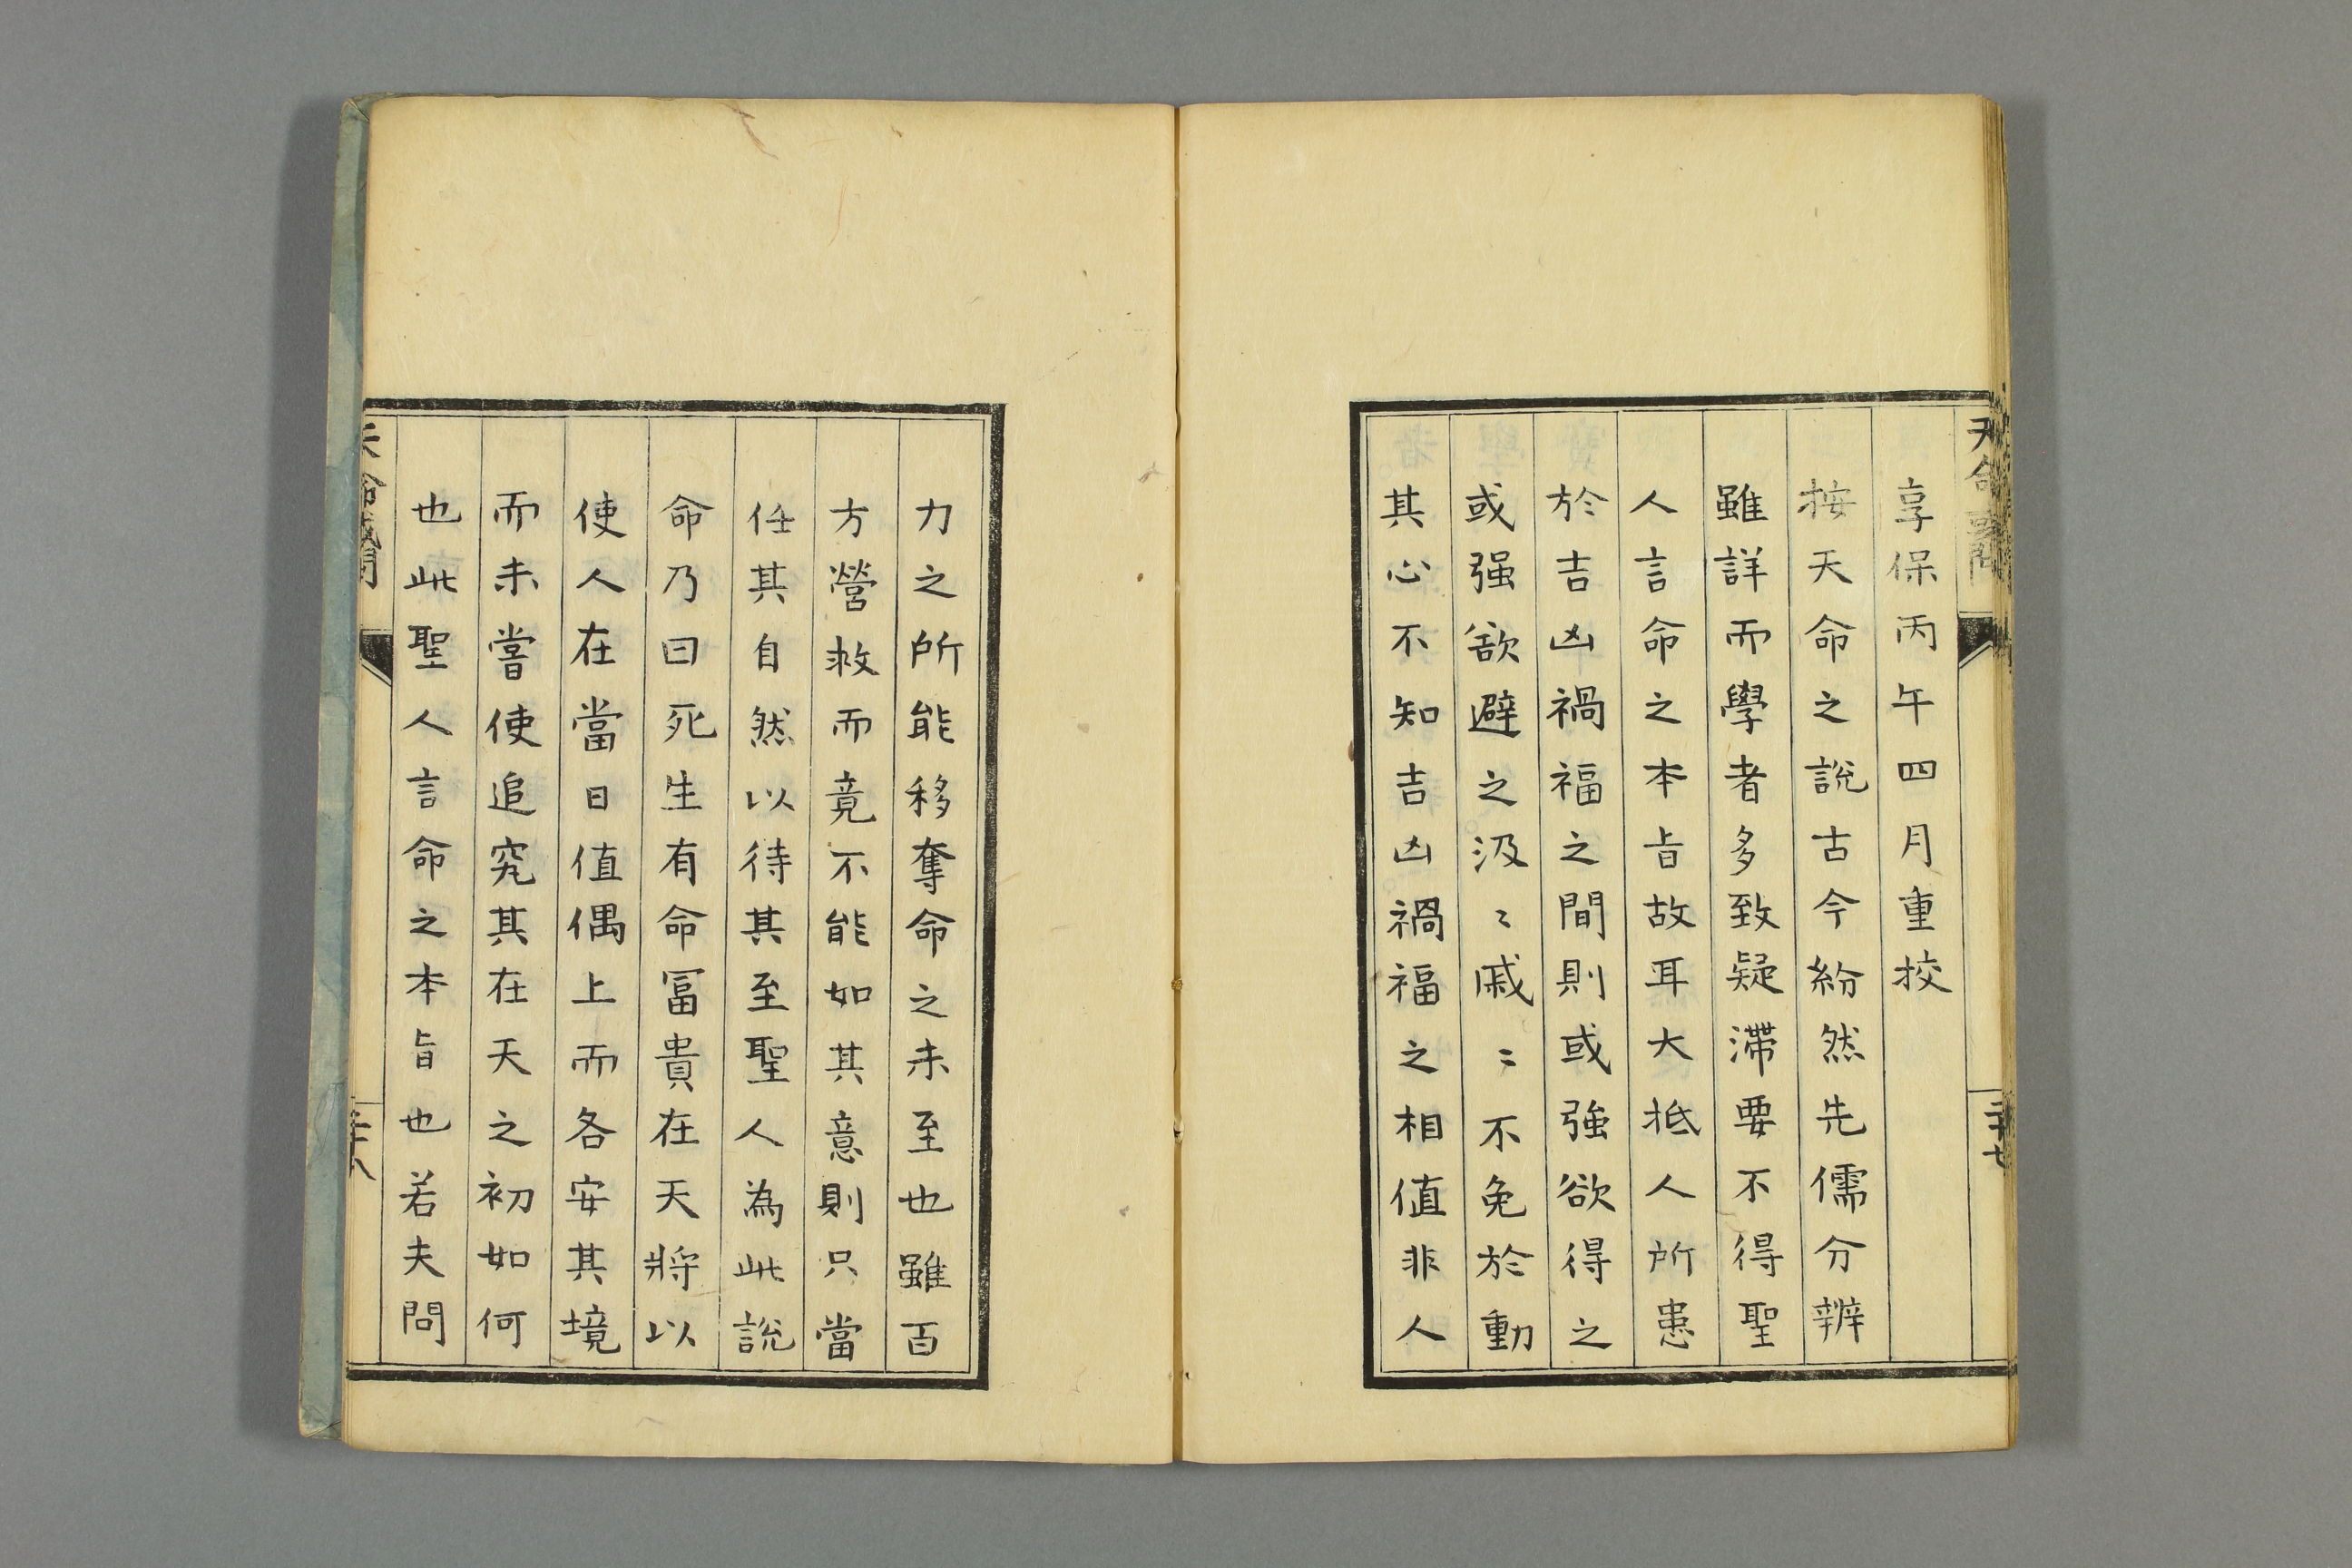 天命或問
享保丙午四月重挍
按天命之說古今紛然先儒分辨
雖詳而學者多致疑滯要不得聖
人言命之本旨故耳大抵人所患
於吉凶禍福之間則或強欲得之
或强欲避之汲〻戚〻不免於動
其心不知吉凶禍福之相値非人
二十七
力之所能移奪命之未至也雖百
方營救而竟不能如其意則只當
任其自然以待其至聖人為此說
命乃曰死生有命冨貴在天將以
使人在當日值偶上而各安其境
而未嘗使追究其在天之初如何
也此聖人言命之本旨也若夫問
天命或問
二十八